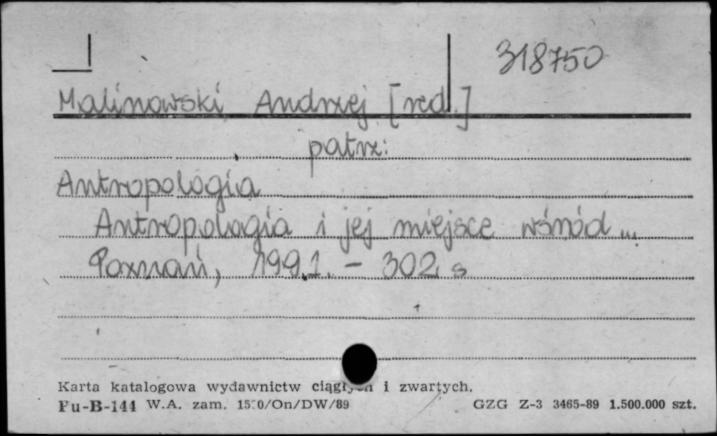 318750
Malinowski Andrzej [red.]
patrz:
Antropologia
Antropologia i jej miejsce wśród...
Poznań, 1991. - 302 s
Karta katalogowa wydawnictw ciągłych i zwartych.
Pu-B-144 W.A. zam. 1570/On/DW/89 GZG Z-3 3465-89 1.500.000 szt.